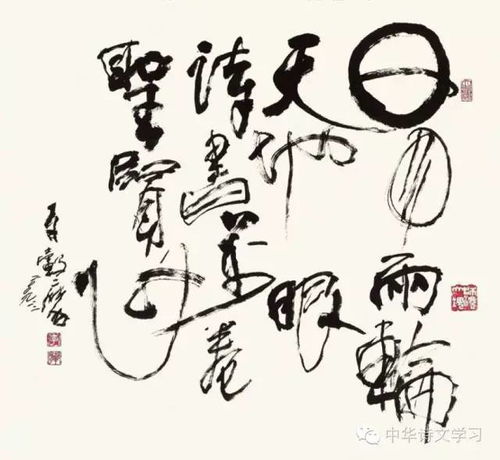 日月兩輪
天地眼
詩書萬卷
聖賢心
中华诗文学习